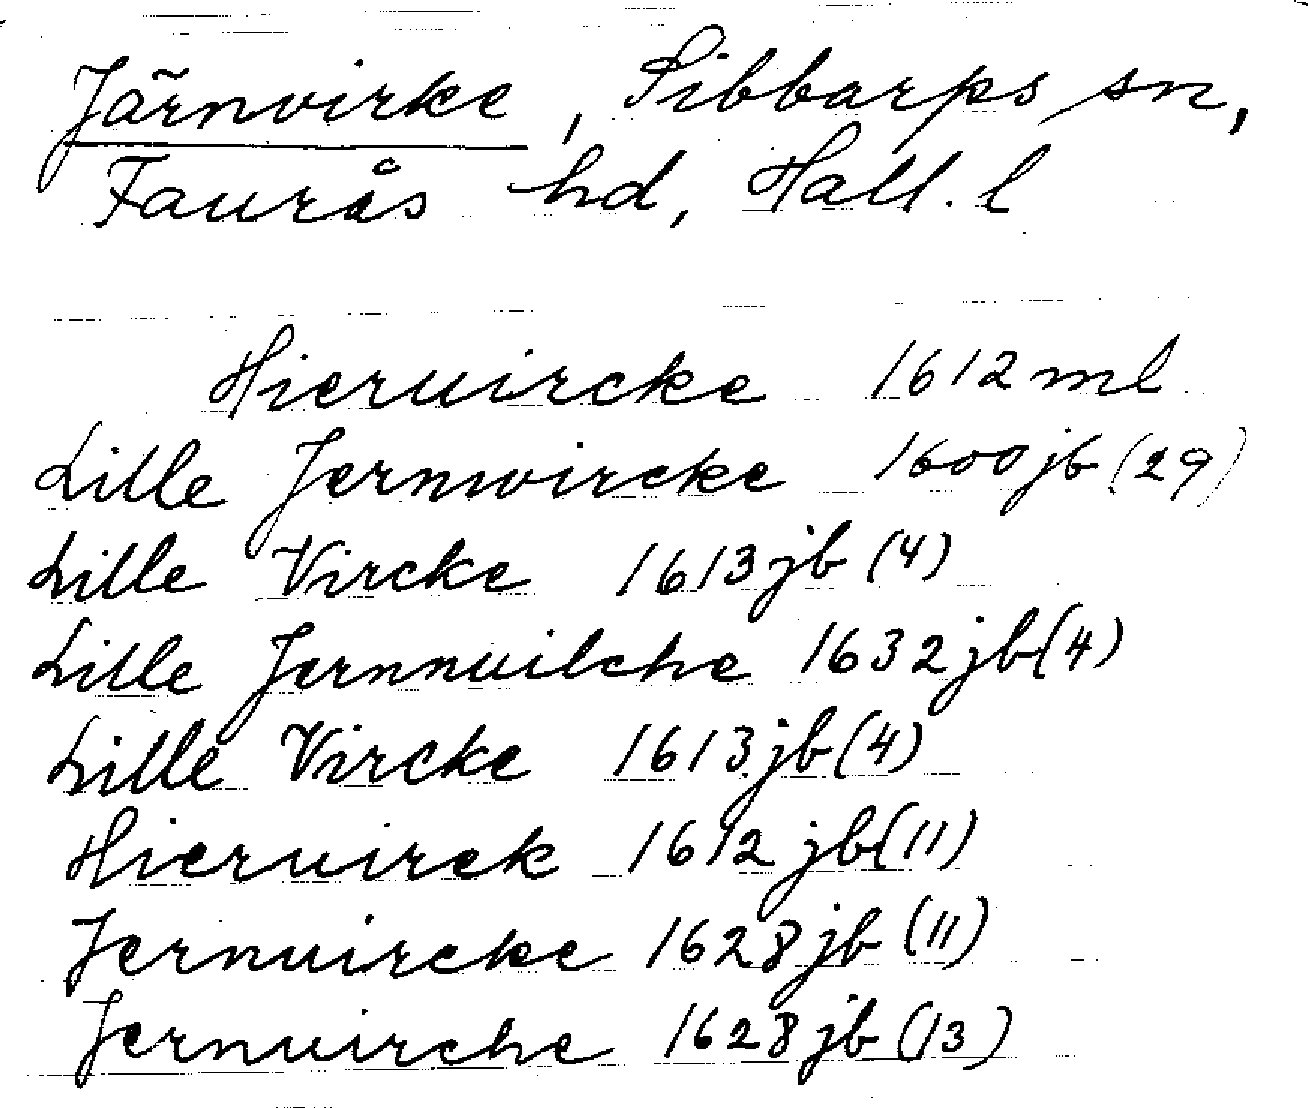 Järnvirke, Sibbarps sn,
Faurås hd, Hall. l
Hieruircke 1612 ml
Lille Jernwircke 1600 jb (29)
Lille Vircke 1613 jb (4)
Lille Jernnuilche 1632 jb (4)
Lille Vircke 1613 jb (4)
Hieruirck 1612 jb (11)
Jernuircke 1628 jb (11)
Jernuirche 1628 jb (13)